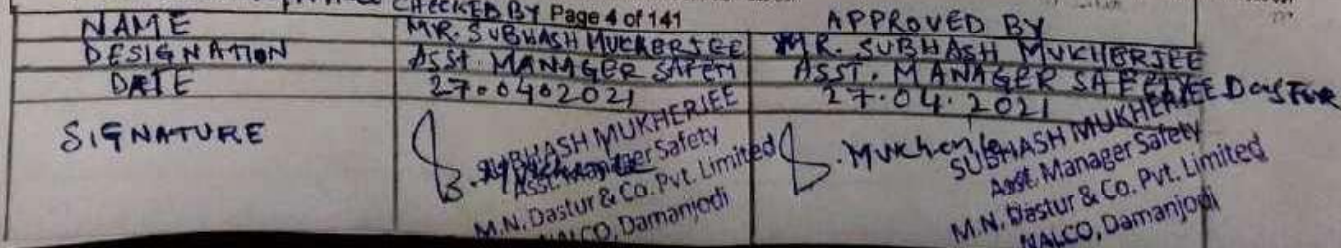 CHECKED BY Page 4 of 141 APPROVED BY
NAME MR. SUBHASH MUKHERJEE MR. SUBHASH MUKHERJEE
DESIGNATION ASST. MANAGER SAFETY ASST. MANAGER SAFETY
DATE 27.04.2021 27.04.2021
SIGNATURE
SUBHASH MUKHERJEE
Asst. Manager Safety
M.N. Dastur & Co. Pvt. Limited
NALCO, Damanjodi
S. Mukherjee
SUBHASH MUKHERJEE
Asst. Manager Safety
M.N. Dastur & Co. Pvt. Limited
NALCO, Damanjodi